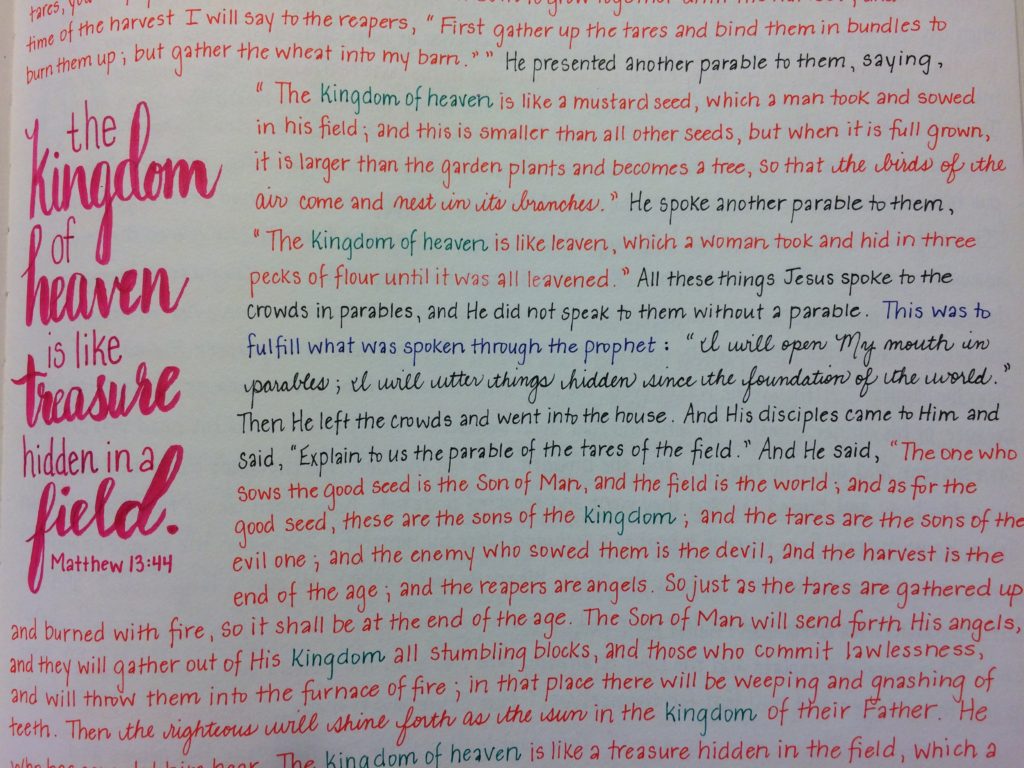 tares, you
time of the harvest I will say to the reapers, "First gather up the tares and bind them in bundles to
burn them up; but gather the wheat into my barn."" He presented another parable to them, saying,
"The kingdom of heaven is like a mustard seed, which a man took and sowed
in his field; and this is smaller than all other seeds, but when it is full grown,
it is larger than the garden plants and becomes a tree, so that the birds of the
air come and nest in its branches." He spoke another parable to them,
"The kingdom of heaven is like leaven, which a woman took and hid in three
pecks of flour until it was all leavened." All these things Jesus spoke to the
crowds in parables, and He did not speak to them without a parable. This was to
fulfill what was spoken through the prophet: "I will open My mouth in
parables; I will utter things hidden since the foundation of the world."
Then He left the crowds and went into the house. And His disciples came to Him and
said, "Explain to us the parable of the tares of the field." And He said, "The one who
sows the good seed is the Son of Man, and the field is the world; and as for the
good seed, these are the sons of the kingdom; and the tares are the sons of the
evil one; and the enemy who sowed them is the devil, and the harvest is the
end of the age; and the reapers are angels. So just as the tares are gathered up
the
kingdom
of
heaven
is like
treasure
hidden in a
field.
Matthew 13:44
and burned with fire, so it shall be at the end of the age. The Son of Man will send forth His angels,
and they will gather out of His Kingdom all stumbling blocks, and those who commit lawlessness,
and will throw them into the furnace of fire; in that place there will be weeping and gnashing of
teeth. Then the righteous will shine forth as the sun in the kingdom of their Father. He
The kingdom of heaven is like a treasure hidden in the field, which a